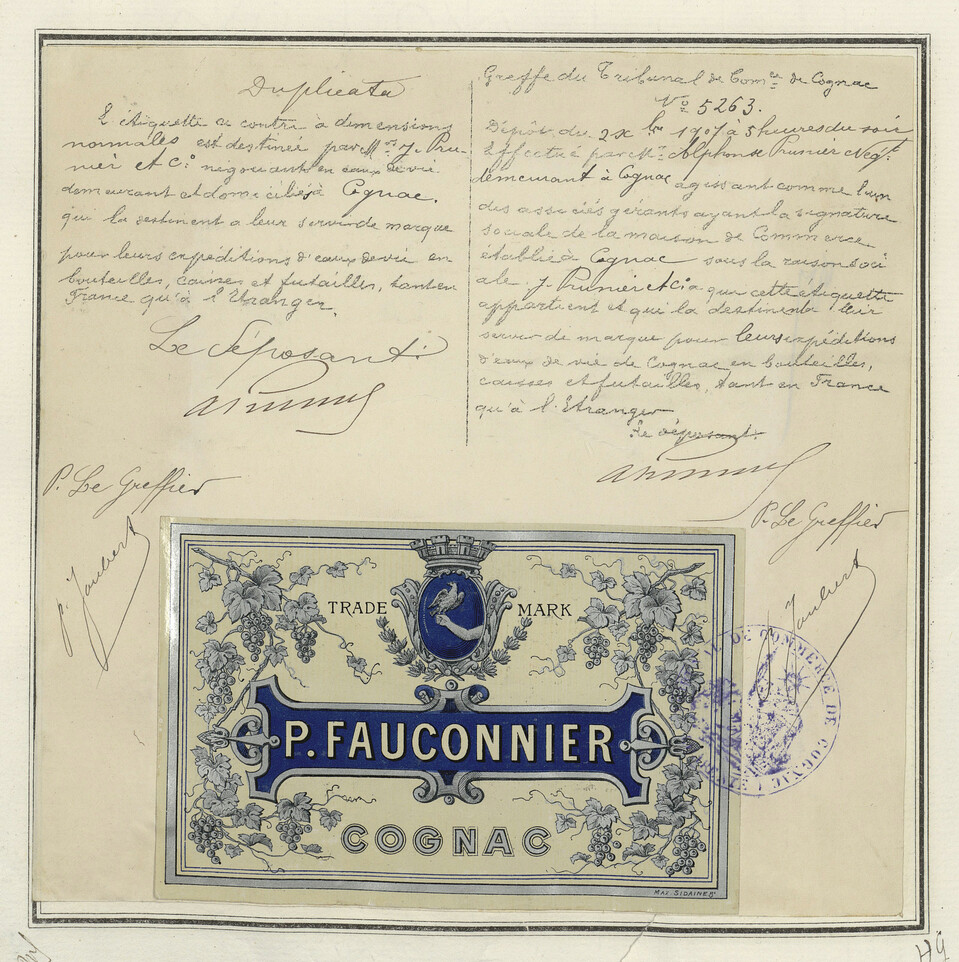 Duplicata
L'étiquette ci contre à dimensions
normales est destinée par MM. J. Pru-
nier et Cie négociants en eaux de vie
demeurant et domiciliés à Cognac.
qui la destinent a leur servir de marque
pour leurs expéditions d'eaux de vie en
bouteilles, caisses et futailles, tant en
France qu'à l'Etranger.
Le Déposant
P. Le Greffier
P. Joubert
Greffe du Tribunal de Comce de Cognac
No 5263.
Dépôt du 2 Xbre 1907 à 5 heures du soir
Effectué par Mr. Alphonse Prunier Négt
demeurant à Cognac agissant comme l'un
des associés gérants ayant la signature
sociale de la maison de Commerce
établie à Cognac sous la raison soci
ale J. Prunier et Cie a qui cette étiquette
appartient et qui la destine à leur
servir de marque pour leurs expéditions
d'eaux de vie de Cognac en bouteilles,
caisses et futailles, tant en France
qu'à l'Etranger
Le déposant.
P. Le Greffier
Joubert
TRADE MARK
P. FAUCONNIER
COGNAC
DE COMMERCE DE COGNAC